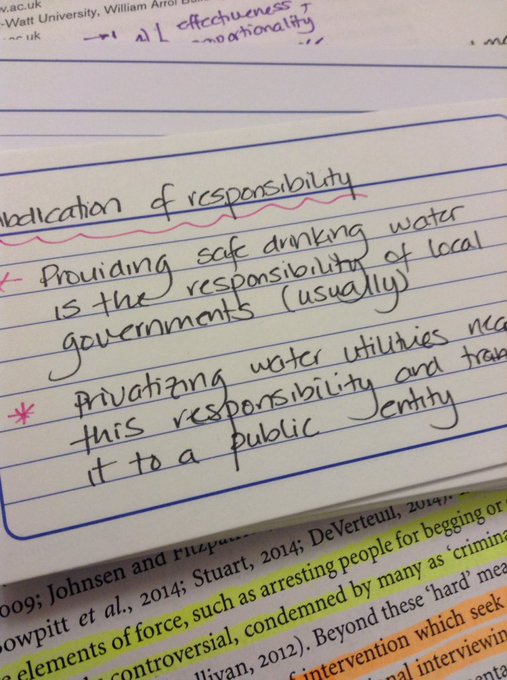 v.ac.uk
-Watt University, William Arrol
effectiveness +
uk
Abdication of responsibility
Providing safe drinking water
is the responsibility of local
governments (usually)
* Privatizing water utilities
this responsibility and
it to a public entity
009; Johnsen and Fitzpa
owpitt et al., 2014; Stuart, 2014; DeVerteuil, 2014).
elements of force, such as arresting people for begging or
controversial, condemned by many as ‘crimina
llivan, 2012). Beyond these ‘hard’ mea
intervention which seek
nal interviewin